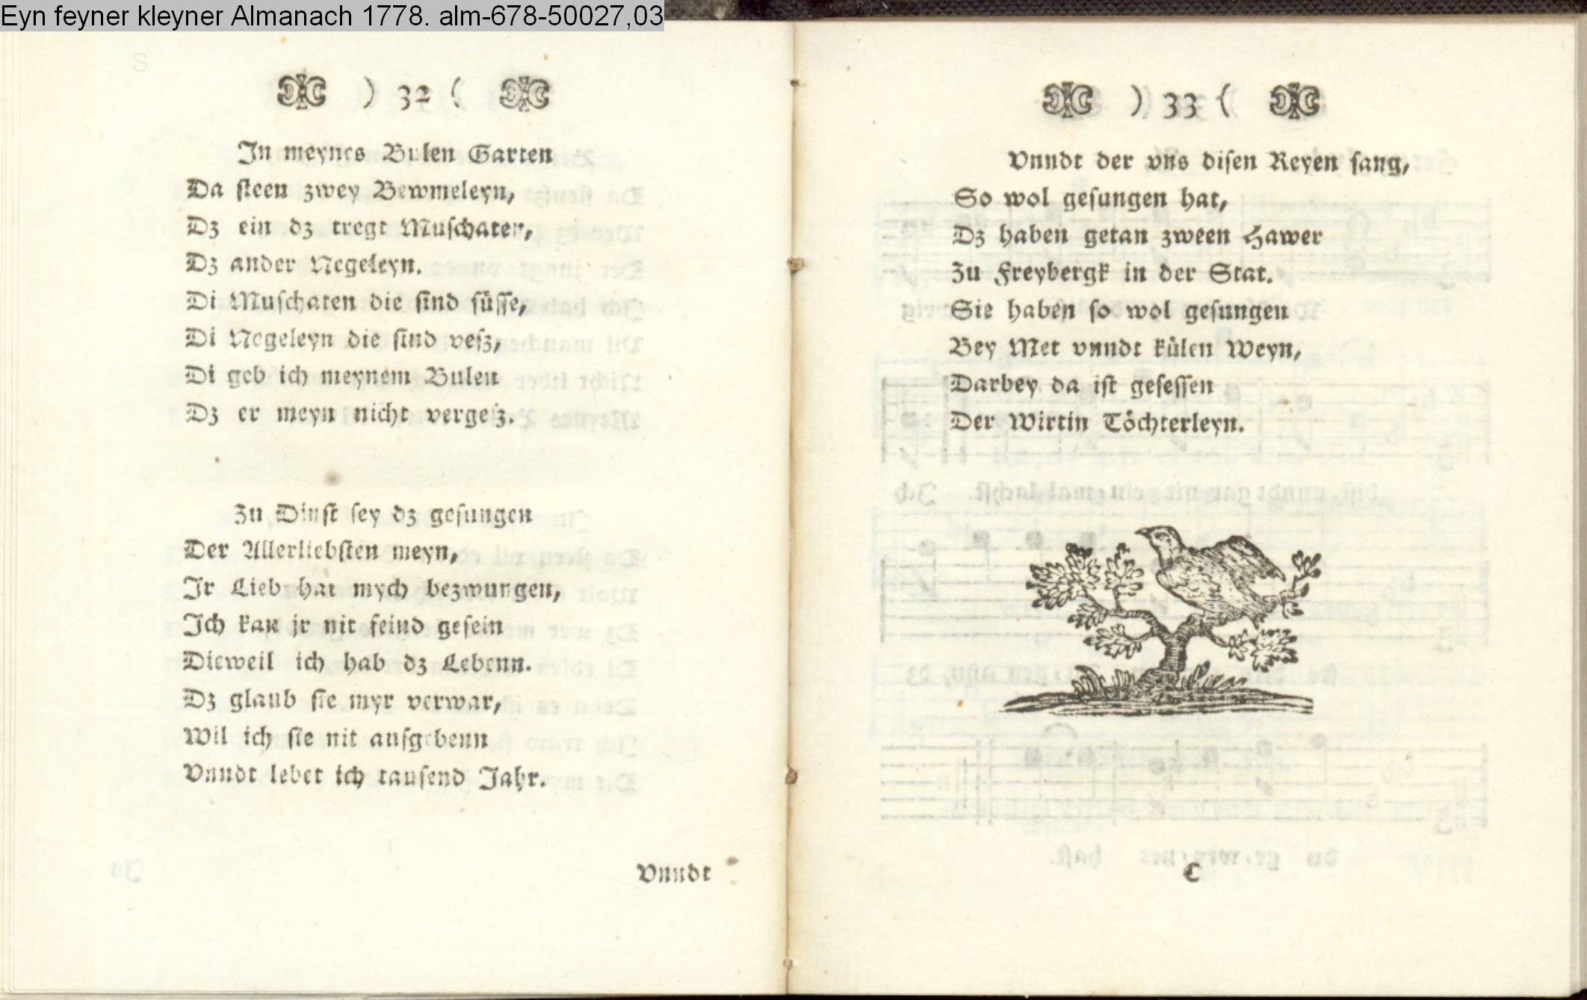 Eyn feyner kleyner Almanach 1778. alm-678-50027,03
) 32 (
In meynes Bulen Garten
Da steen zwey Bewmeleyn,
Dz ein dz tregt Muschaten,
Dz ander Negeleyn.
Di Muschaten die sind süsse,
Di Negeleyn die sind resz,
Di geb ich meynem Bulen
Dz er meyn nicht vergesz.
Zu Dinst sey dz gesungen
Der Allerliebsten meyn,
Ir Lieb hat mych bezwungen,
Ich kan jr nit feind gesein
Dieweil ich hab dz Lebenn.
Dz glaub sie myr verwar,
Wil ich sie nit aufgebenn
Vnndt lebet ich tausend Jahr.
Vnndt
) 33 (
Vnndt der vns disen Reyen sang,
So wol gesungen hat,
Dz haben getan zween Hawer
Zu Freybergk in der Stat.
Sie haben so wol gesungen
Bey Met vnndt külen Weyn,
Darbey da ist gesessen
Der Wirtin Töchterleyn.
C